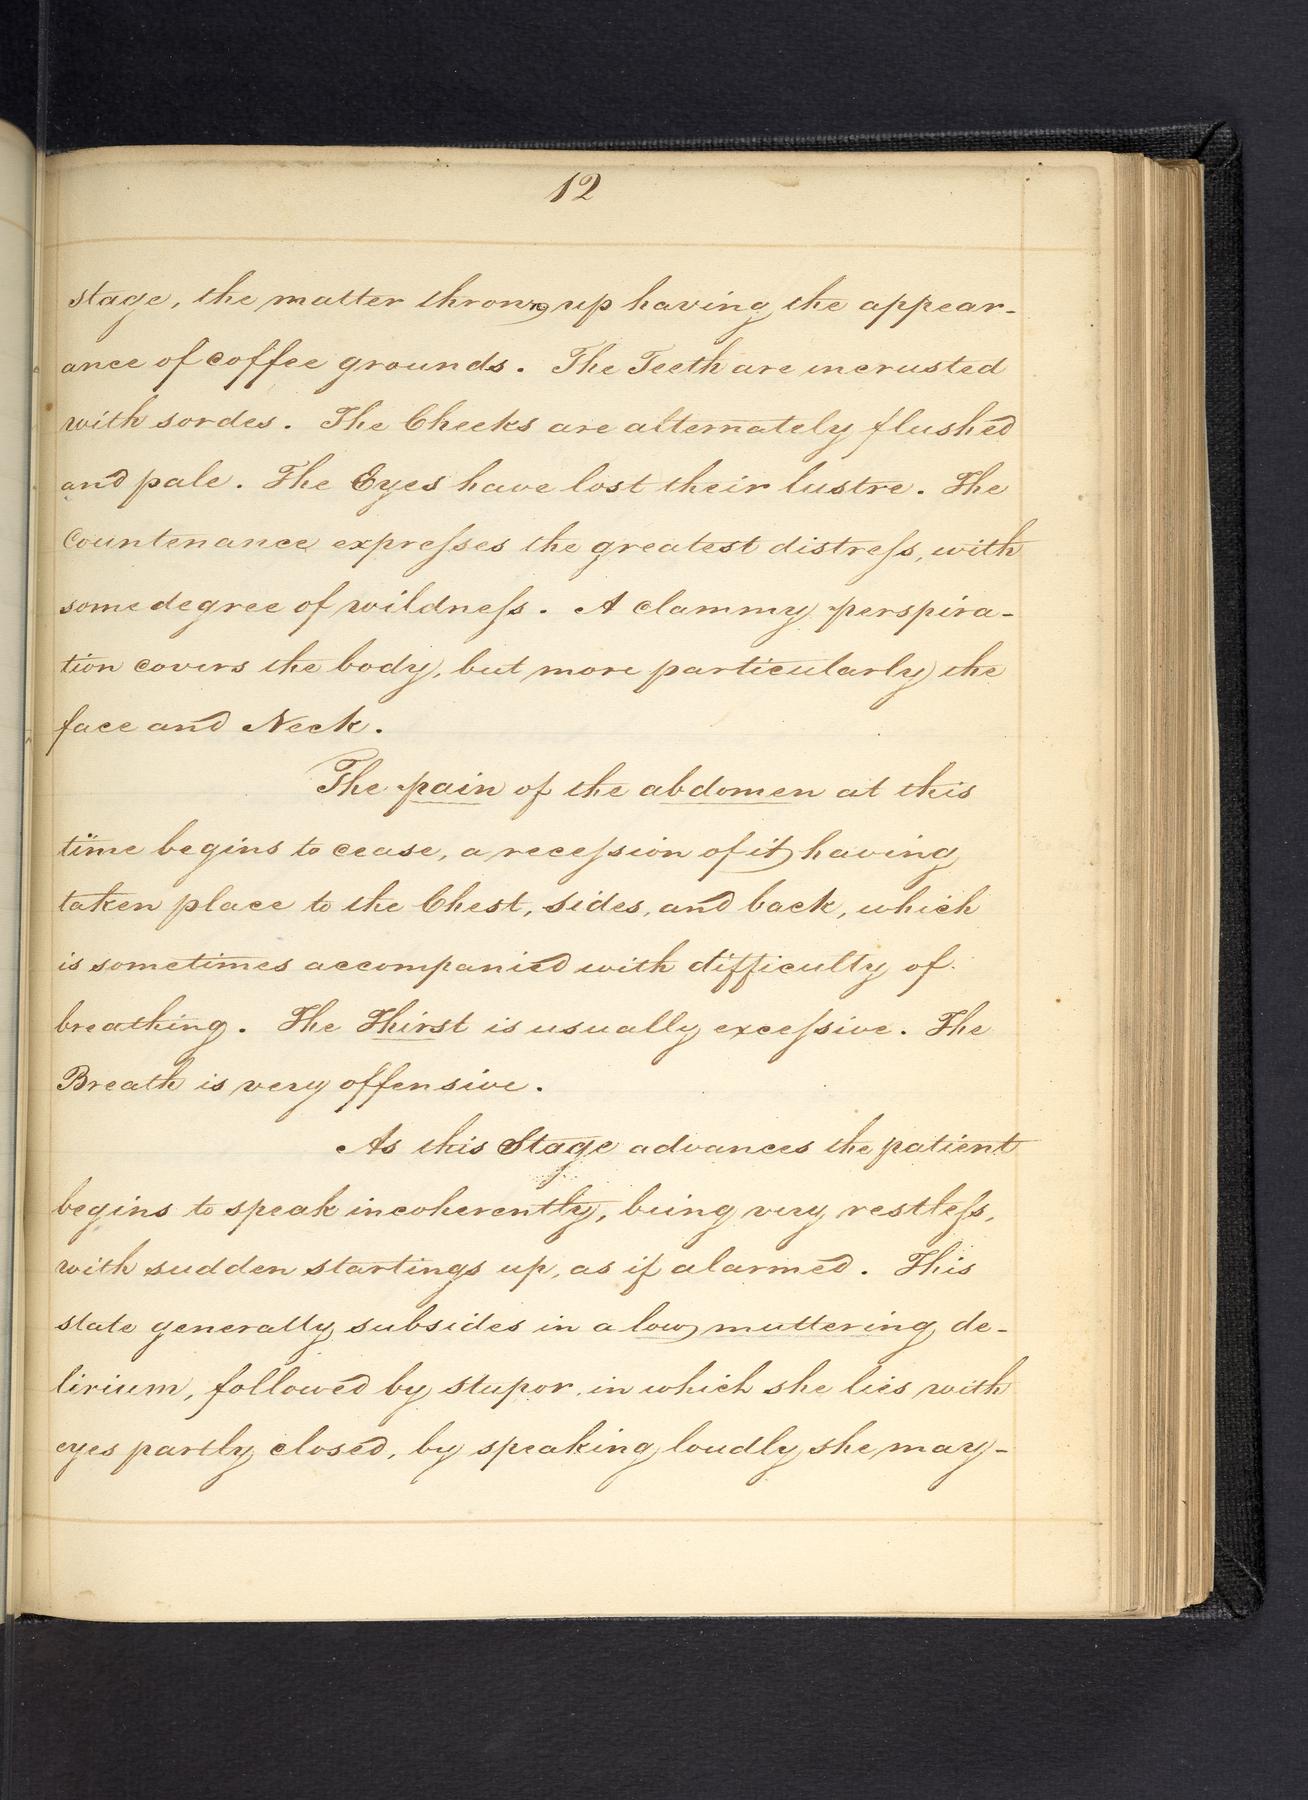 12
stage, the matter thrown up having the appear-
ance of coffee grounds. The Teeth are incrusted
with sordes. The Cheeks are alternately flushed
and pale. The Eyes have lost their lustre. The
Countenance expreſses the greatest distreſs, with
some degree of wildneſs. A clammy perspira-
tion covers the body, but more particularly the
face and Neck.
The pain of the abdomen at this
time begins to cease, a receſsion of it having
taken place to the Chest, sides, and back, which
is sometimes accompanied with difficulty of
breathing. The Thirst is usually exceſsive. The
Breath is very offensive.
As this Stage advances the patient
begins to speak incoherently, being very restleſs,
with sudden startings up, as if alarmed. This
state generally subsides in a low muttering de-
lirium, followed by stupor, in which she lies with
eyes partly closed, by speaking loudly she may-